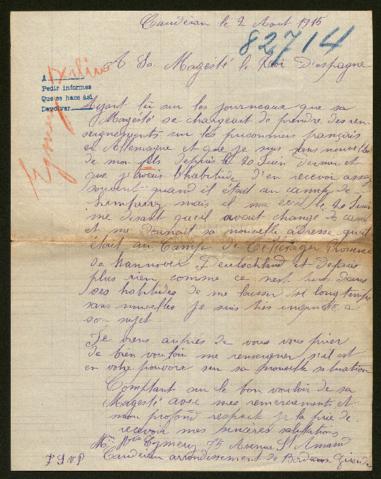 Caudéran le 2 Aout 1915
82714
A Sa Magesté le Roi D'espagne
A Berlin
Pedir informes
Que se hace así
Devolver
Eymery
Ayant lu sur les journeaux que sa
Magesté se chargeait de prendre des ren
seignements sur les prisonniers français
en Allemagne et que je suis sans nouvelles
de mon fils depuis le 20 Juin dernier et
que j'avais l'habitude d'en recevoir assez
souvent quand il était au camp de
mais il m'a écrit le 20 Juin
me disant qu'il avait changé de camp
et me donnait sa nouvelle adresse qu'il
était au Camp de Province
de Hannover Deutschland et depuis
plus rien comme ce n'est pas dans
ses habitudes de me laisser si longtemps
sans nouvelles je suis très inquiète à
son sujet
Je viens auprès de vous vous prier
de bien vouloir me renseigner s'il est
en votre pouvoir sur sa nouvelle situation
Comptant sur le bon vouloir de sa
Magesté avec mes remerciements et
mon profond respect je la prie de
recevoir mes sincères salutations
Eymery 74 Avenue St Amand
Caudéran arrondissement de Bordeaux Gironde